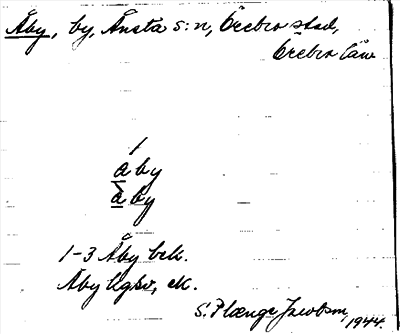 Åby, by, Ånsta s:n, Örebro stad,
Örebro län
áby
àby
1-3 Åby bek.
Åby lgsv, ek.
S. Plænge Jacobson, 1944.